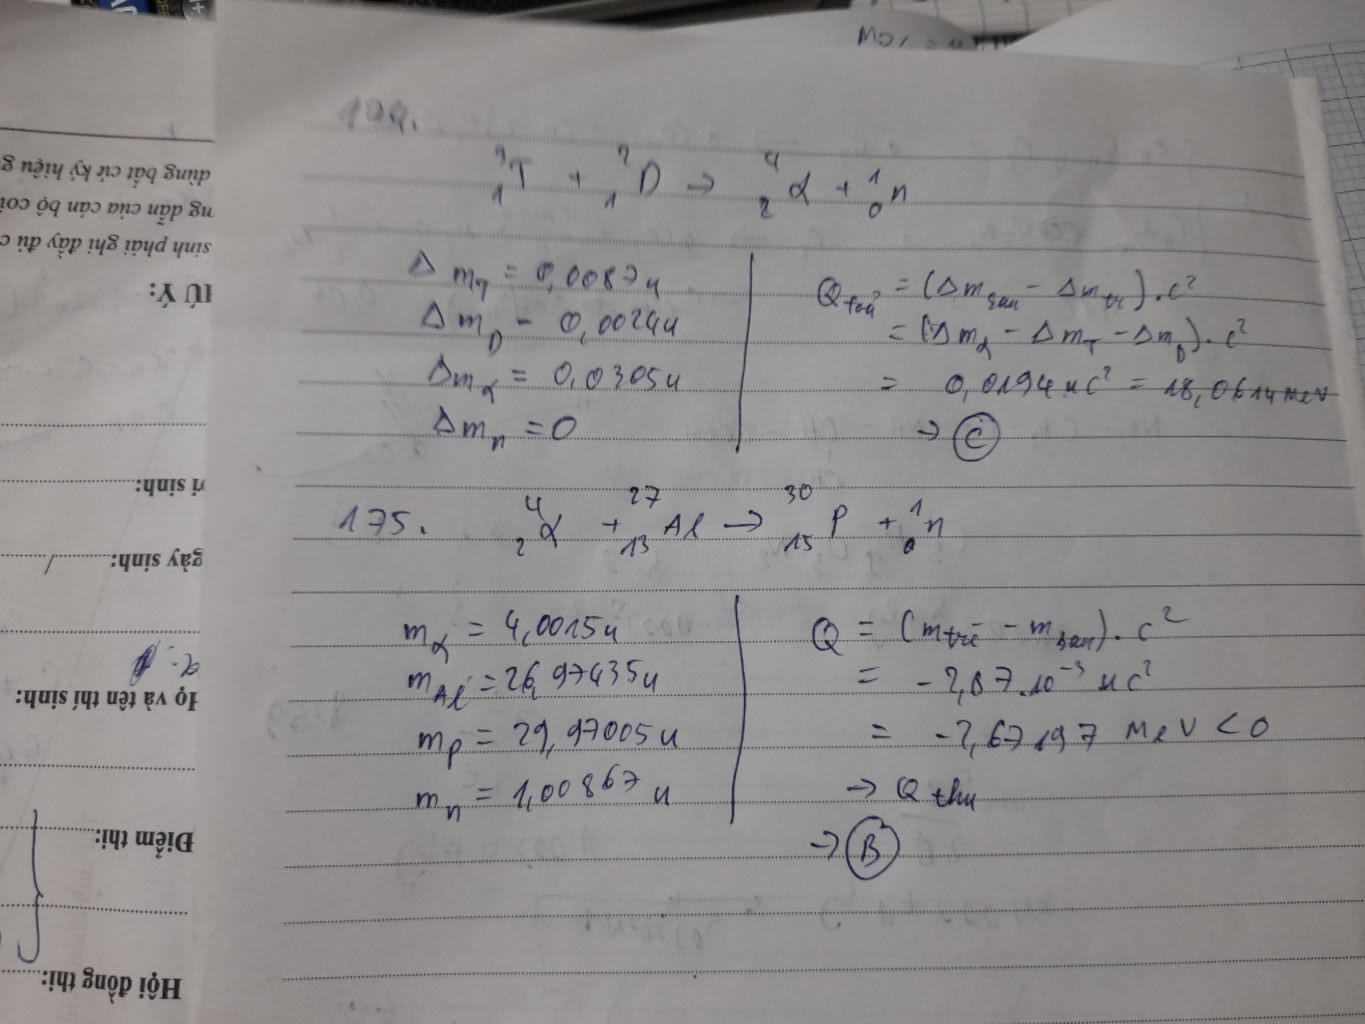 174.
³₁T + ²₁D → ⁴₂α + ¹₀n
Δm_T = 0,0087u
Δm_D = 0,0024u
Δm_α = 0,0305u
Δm_n = 0
Q_toả = (Δm_sau - Δm_tr).c²
= (Δm_α - Δm_T - Δm_D).c²
= 0,0194uc² = 18,0614 MeV
→ C
175. ⁴₂α + ²⁷₁₃Al → ³⁰₁₅P + ¹₀n
m_α = 4,0015u
m_Al = 26,97435u
m_P = 29,97005u
m_n = 1,00867u
Q = (m_trc - m_sau).c²
= -2,87.10⁻³ uc²
= -2,67197 MeV < 0
→ Q thu
→ B
Hội đồng thi:
Điểm thi:
Họ và tên thí sinh:
gày sinh: /
ơi sinh:
HÚ Ý:
sinh phải ghi đầy đủ c
ng dẫn của cán bộ coi
dùng bất cứ ký hiệu g